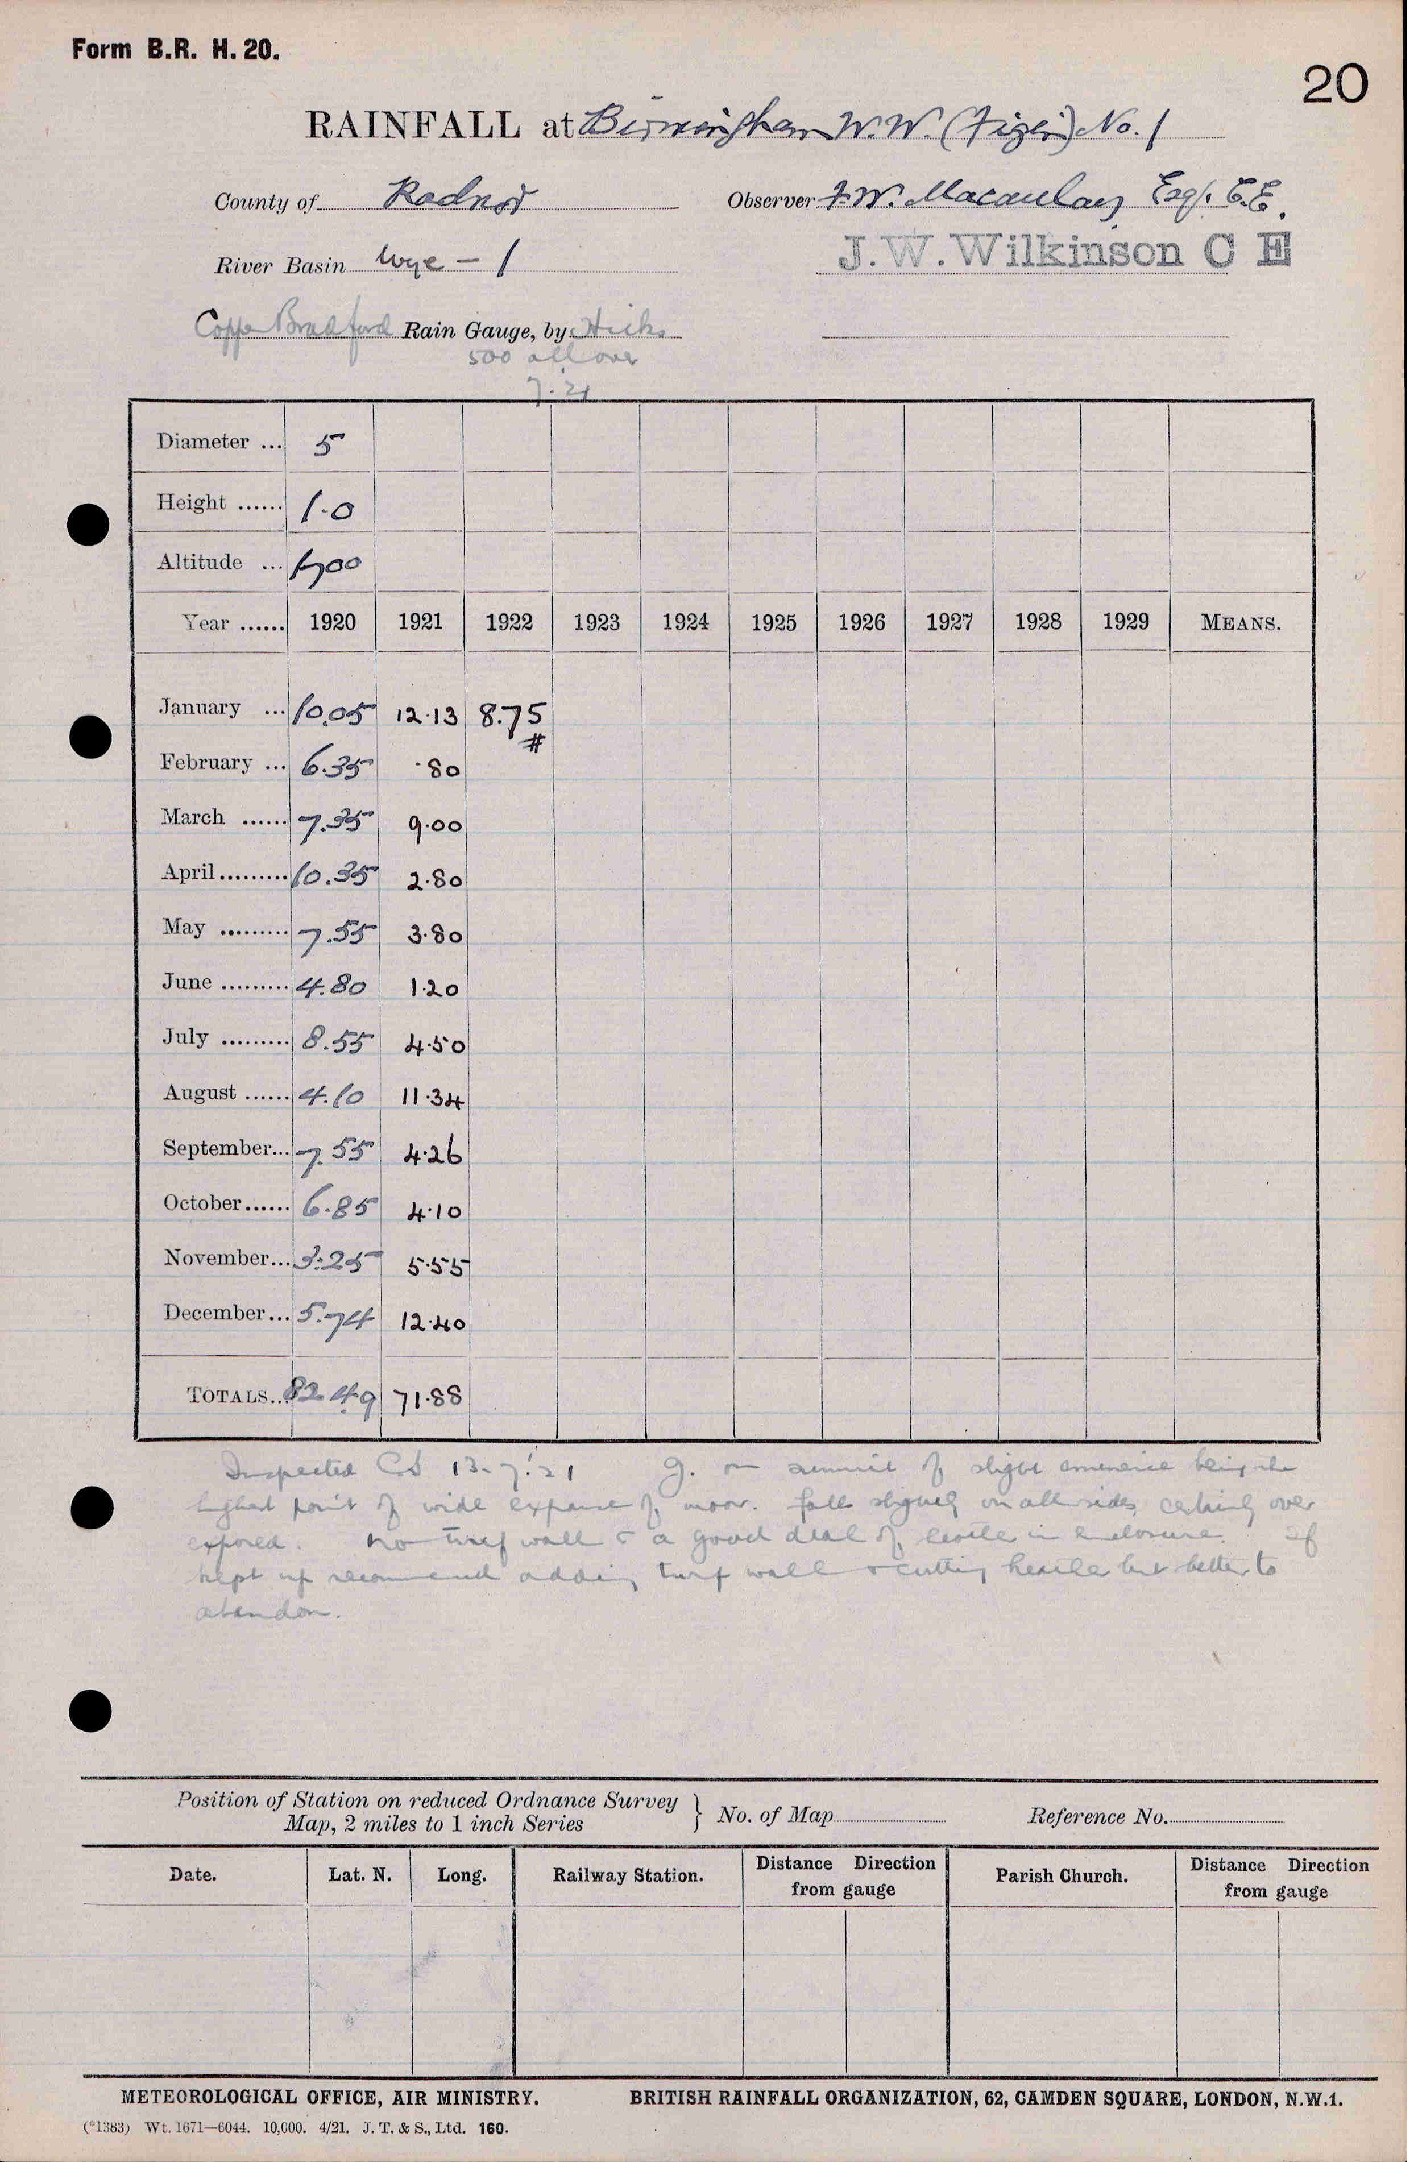 Form B.R. H. 20.
20
RAINFALL at Birmingham W.W. (Figin) No. 1
County of Radnor Observer F.W. Macaulay Esq. C.E.
River Basin Wye - 1 J.W. Wilkinson C E
Copper Bradford Rain Gauge, by Hicks
500 all over
7.21
Diameter ... 5
Height ...... 1.0
Altitude ... 1700
Year ...... 1920 1921 1922 1923 1924 1925 1926 1927 1928 1929 MEANS.
January ... 10.05 12.13 8.75
#
February ... 6.35 .80
March ...... 7.35 9.00
April ......... 10.35 2.80
May ......... 7.55 3.80
June ......... 4.80 1.20
July ......... 8.55 4.50
August ...... 4.10 11.34
September... 7.55 4.26
October...... 6.85 4.10
November... 3.25 5.55
December... 5.74 12.40
TOTALS... 82.49 71.88
Inspected 13.7.21 g. on summit of slight eminence being the
highest point of wide expanse of moor. falls slightly on all sides, certainly over
exposed. No turf wall & a good deal of in enclosure. If
kept up recommend adding turf wall & cutting but better to
abandon.
Position of Station on reduced Ordnance Survey
Map, 2 miles to 1 inch Series } No. of Map Reference No.
Date. Lat. N. Long. Railway Station. Distance Direction from gauge Parish Church. Distance Direction from gauge
METEOROLOGICAL OFFICE, AIR MINISTRY. BRITISH RAINFALL ORGANIZATION, 62, CAMDEN SQUARE, LONDON, N.W.1.
(*1383) Wt. 1671—6044. 10,000. 4/21. J. T. & S., Ltd. 160.